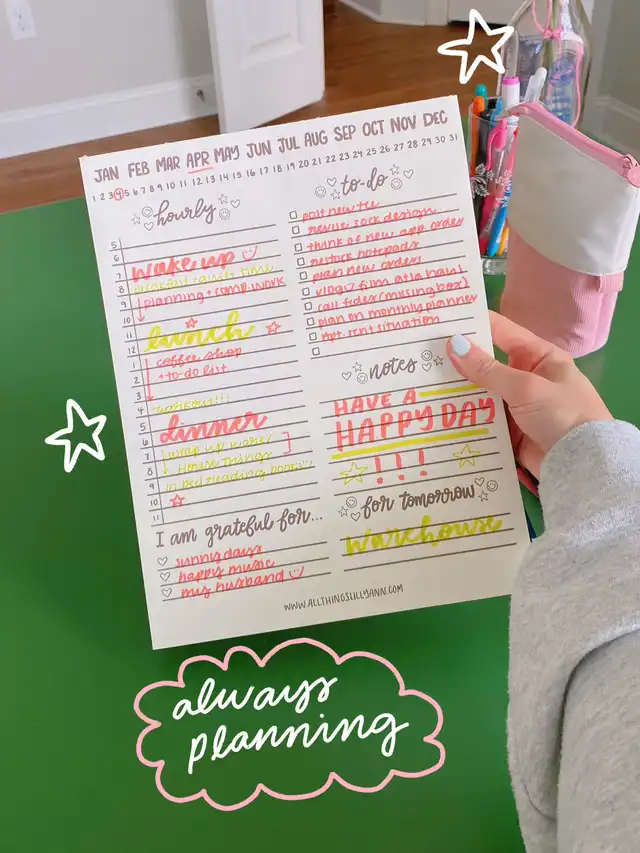 JAN FEB MAR APR MAY JUN JUL AUG SEP OCT NOV DEC
1 2 3 4 5 6 7 8 9 10 11 12 13 14 15 16 17 18 19 20 21 22 23 24 25 26 27 28 29 30 31
hourly
5
6
7 wake up
8 breakfast + quiet time
9 planning + comp. work
10
11 lunch
12
1 coffee shop
2 + to-do list
3
4 workout!!!
5 dinner
6
7 wrap up work
8 House Things
9 in bed reading books
10
11
I am grateful for...
sunny days
happy music
my husband
to-do
post new tee
revise sock design
think of new app. order
restock notepads
plan new orders
vlog & film ats haul
call fedex (missing box)
plan on monthly planner
rent situation
notes
HAVE A
HAPPY DAY
!!!
for tomorrow
warehouse
WWW.ALLTHINGSLILLYANN.COM
always
planning